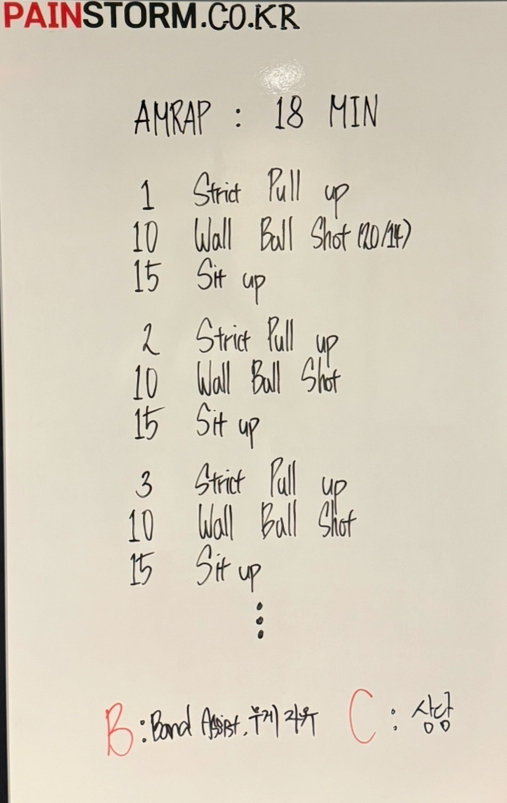 PAINSTORM.CO.KR
AMRAP : 18 MIN
1 Strict Pull up
10 Wall Ball Shot (20/14)
15 Sit up
2 Strict Pull up
10 Wall Ball Shot
15 Sit up
3 Strict Pull up
10 Wall Ball Shot
15 Sit up
⋮
B : Band Assist, 무게 자유 C : 상당